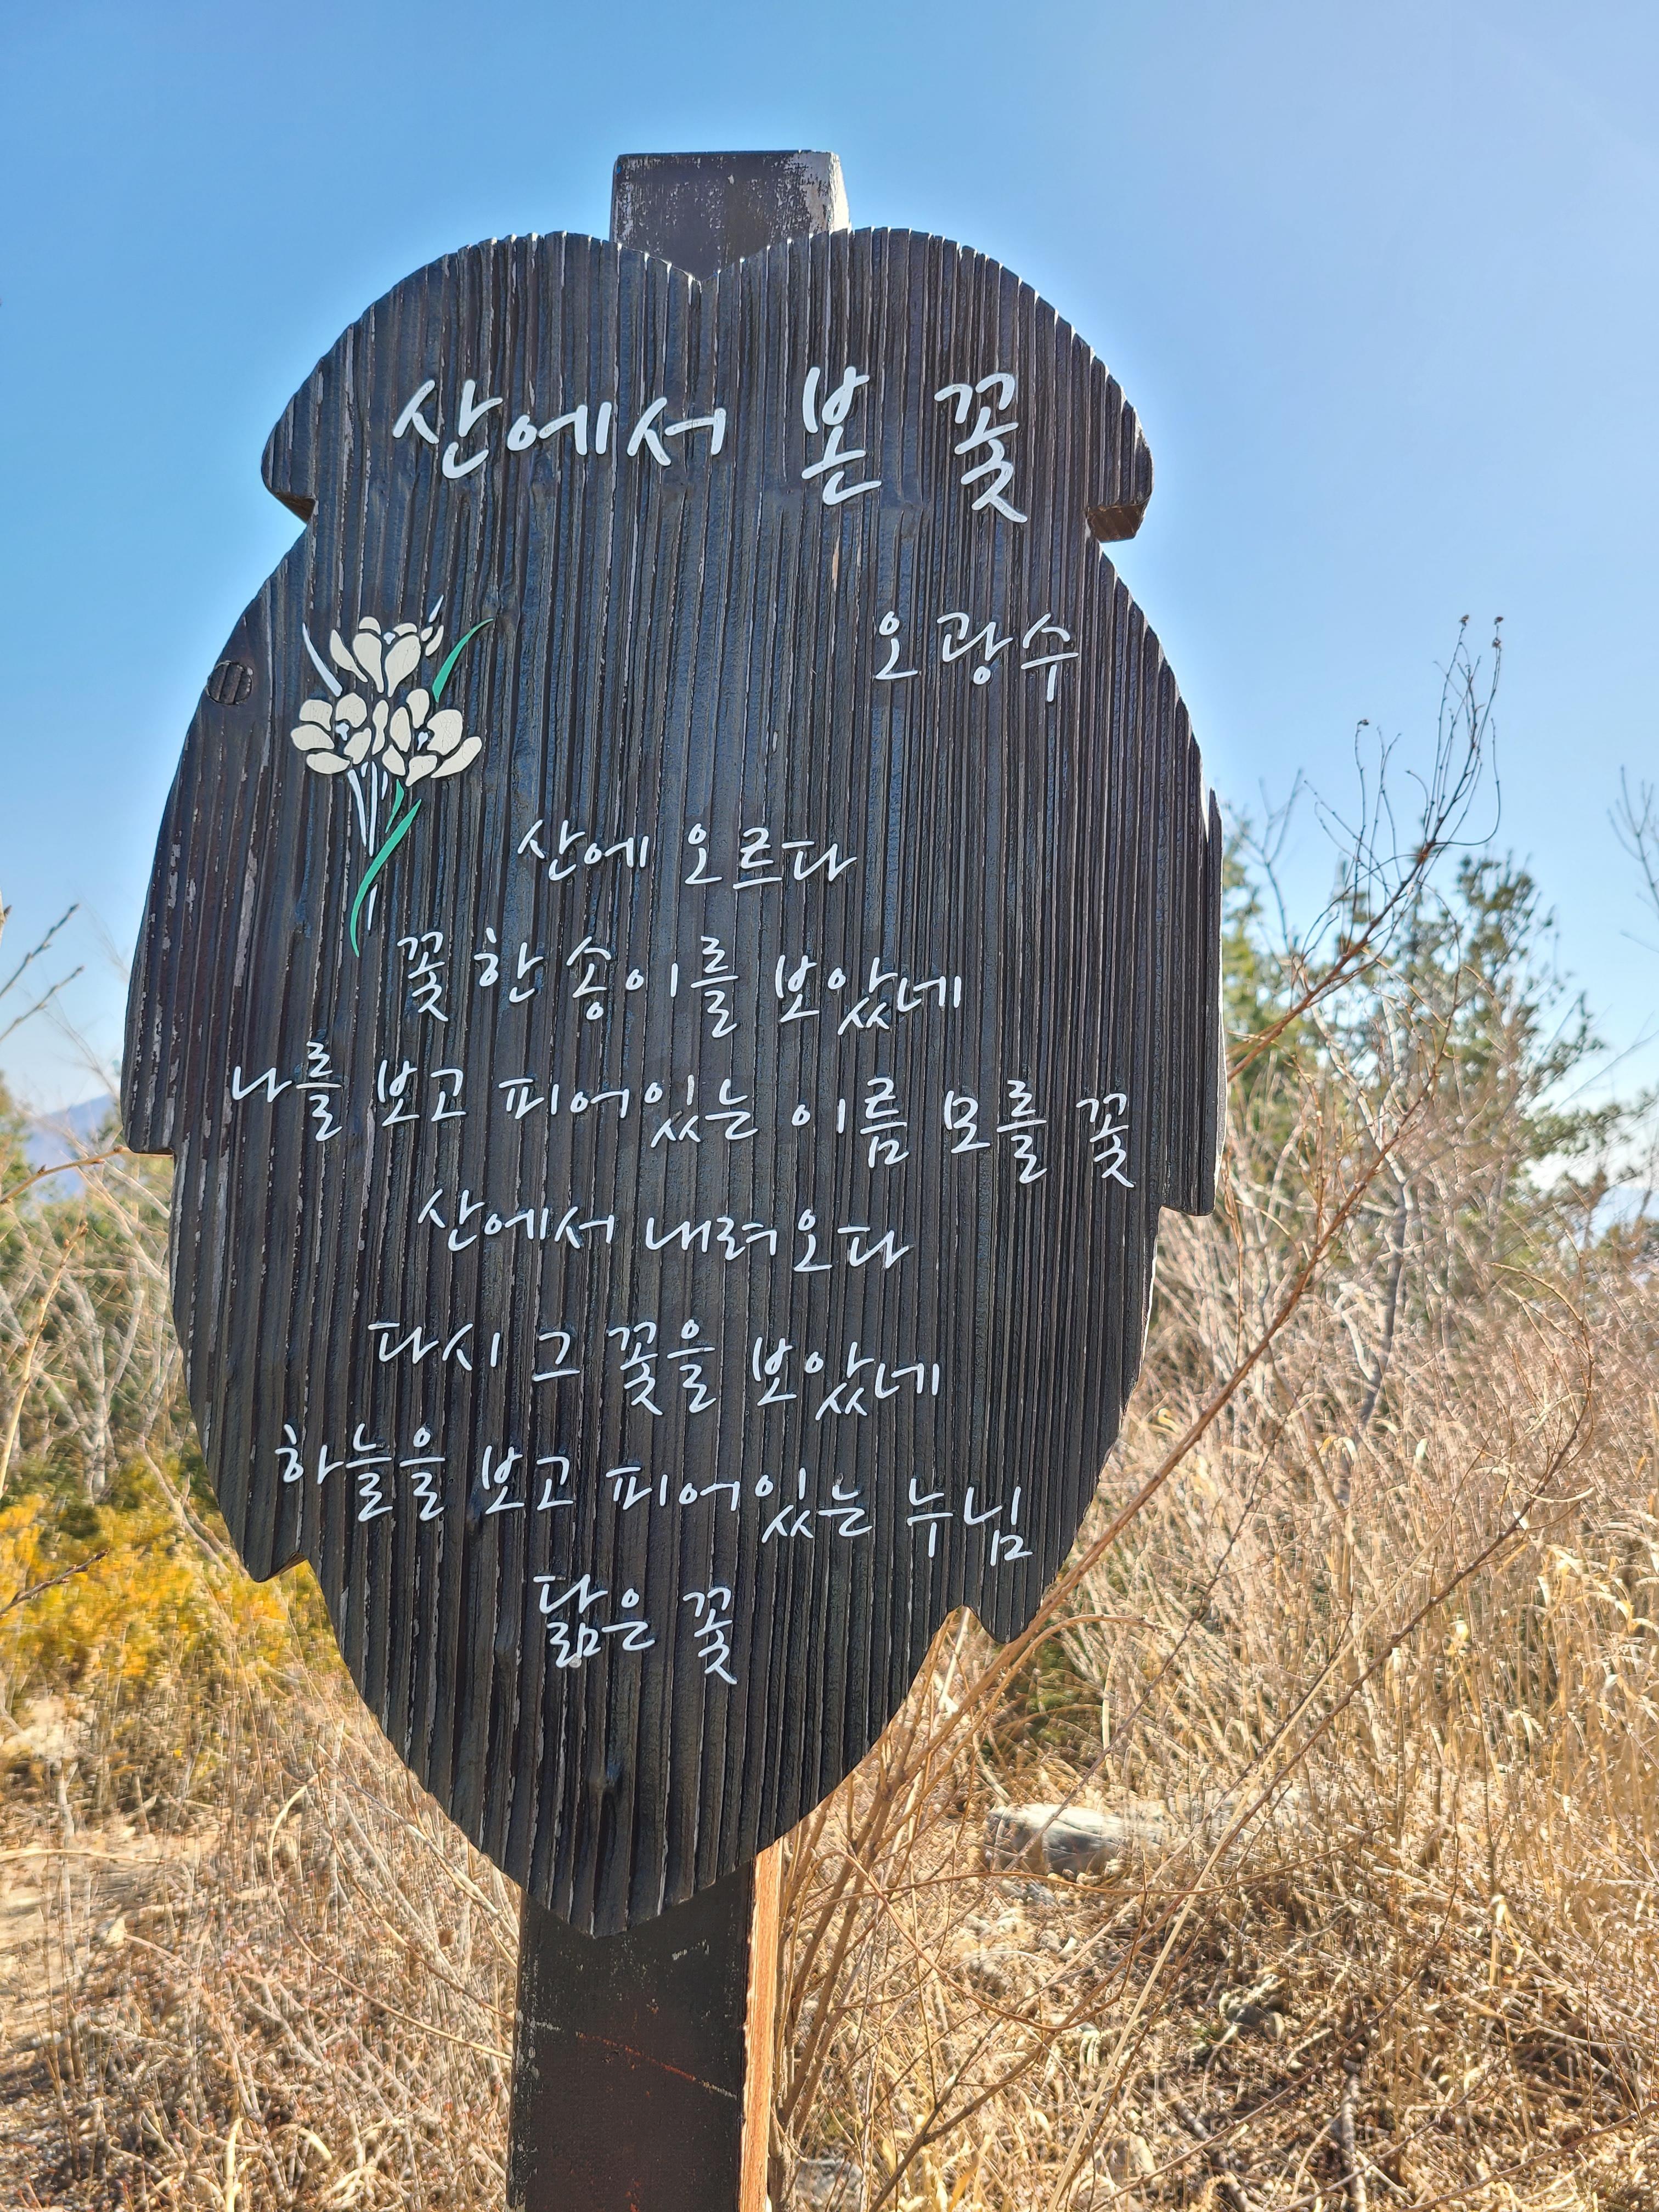 산에서 본 꽃
오광수
산에 오르다
꽃 한 송이를 보았네
나를 보고 피어있는 이름 모를 꽃
산에서 내려오다
다시 그 꽃을 보았네
하늘을 보고 피어있는 누님
닮은 꽃